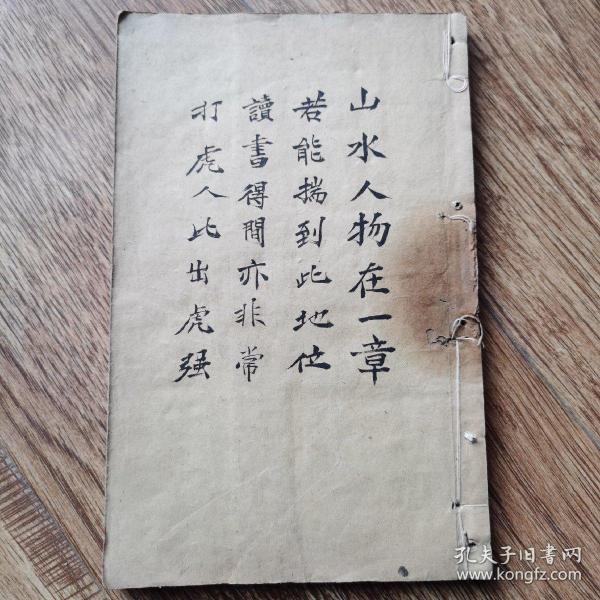 山水人物在一章
若能揣到此地位
讀書得間亦非常
打虎人比出虎强
孔夫子旧书网
www.kongfz.com